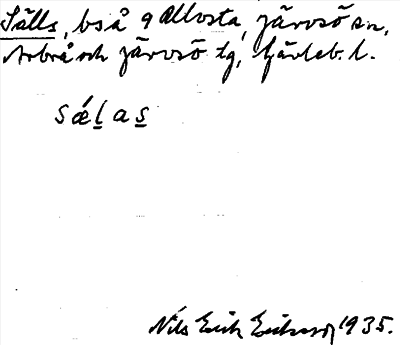 Sälls, bså q Allosta, Järvsö sn,
Arbrå och Järvsö tg, Gävleb. l.
sǽl̲as̲
Nils Erik Eriksson 1935.